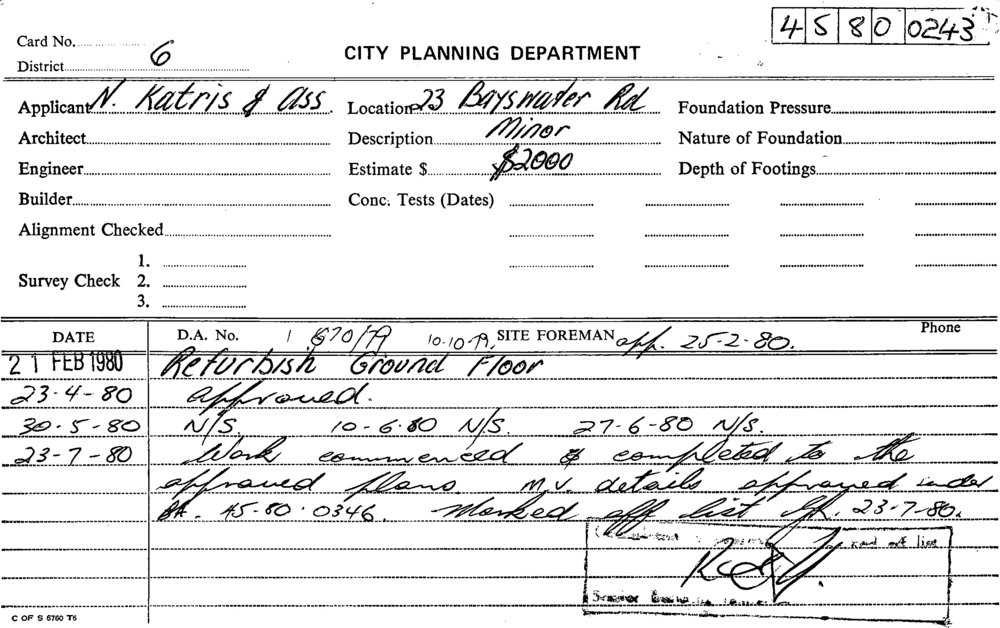 4580 0243
Card No.
District 6
CITY PLANNING DEPARTMENT
Applicant N. Katris & Ass. Location 23 Bayswater Rd Foundation Pressure
Architect Description Minor Nature of Foundation
Engineer Estimate $ $2000 Depth of Footings
Builder Conc. Tests (Dates)
Alignment Checked
1.
Survey Check 2.
3.
DATE D.A. No. 1670/79 10.10.79 SITE FOREMAN app. 25-2-80. Phone
21 FEB 1980 Refurbish Ground Floor
23-4-80 approved.
30-5-80 N/S. 10-6-80 N/S. 27-6-80 N/S.
23-7-80 Work commenced & completed to the
approved plans. M.V. details approved under
BA. 45-80-0346. Marked off list 23-7-80.
off list
Senior Building
C OF S 6760 T6